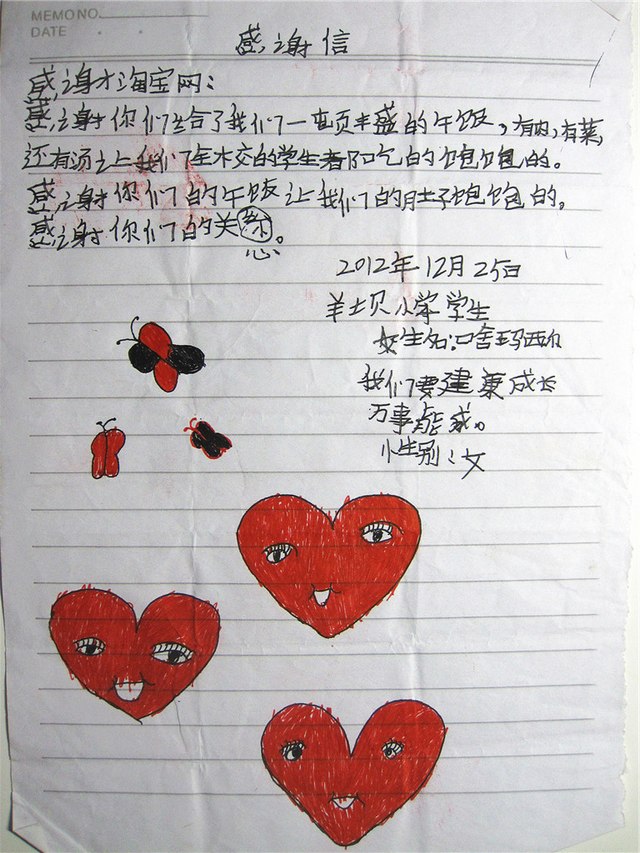 MEMO NO.
DATE
感谢信
感谢才淘宝网：
感谢你们给了我们一顿丰盛的午饭，有肉，有菜，
还有汤让我们全木交的学生者阝吃的饱饱的。
感谢你们的午饭让我们的肚子饱饱的。
感谢你们的关心。
2012年12月25日
羊坝小学学生
女生名：舍玛西尔
我们要建康成长
万事能成。
小生别：女